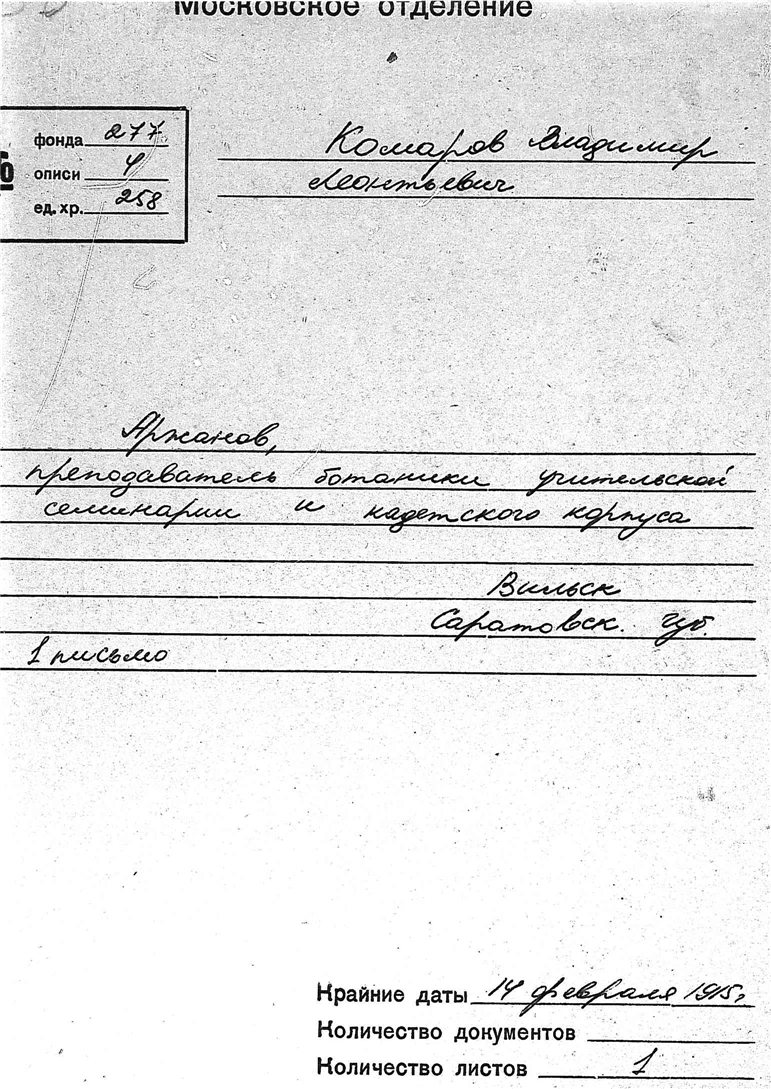 Московское отделение
фонда 277
описи 4
ед. хр. 258
Комаров Владимир
Леонтьевич
Аржанов,
преподаватель ботаники учительской
семинарии и кадетского корпуса
Вильск
Саратовск. губ.
1 письмо
Крайние даты 14 февраля 1915г
Количество документов
Количество листов 1